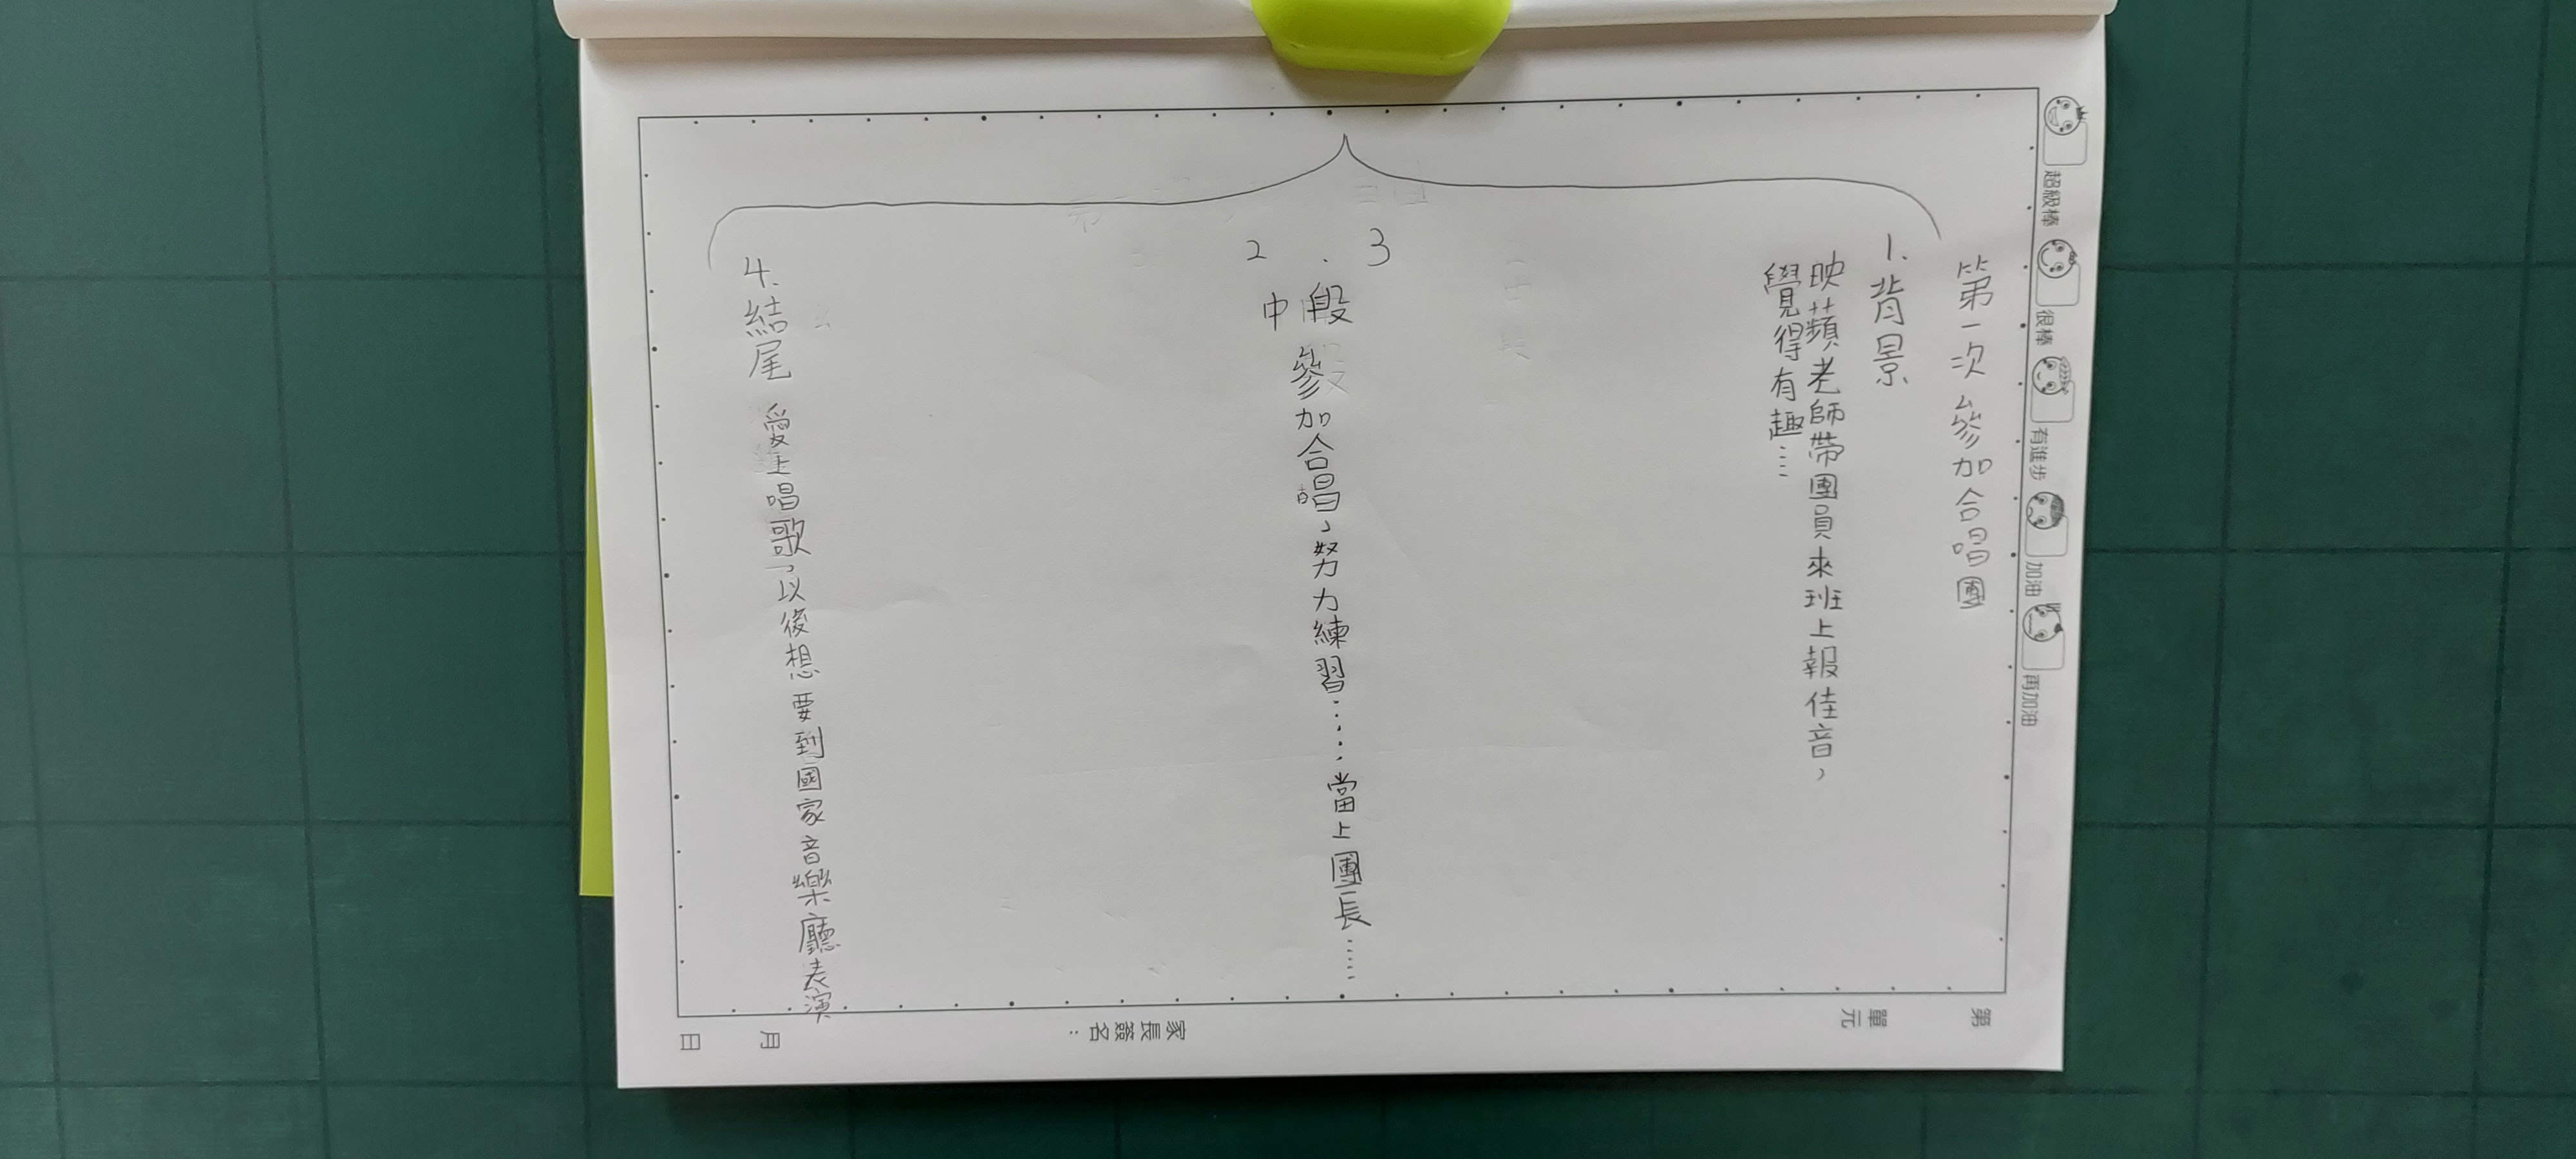 第一次參加合唱團
1.背景
映蘋老師帶團員來班上報佳音，
覺得有趣....
2.3
中段
參加合唱，努力練習......當上團長.....
4.結尾 愛上唱歌，以後想要到國家音樂廳表演
超級棒 很棒 有進步 加油 再加油
第
單元
家長簽名：
月
日